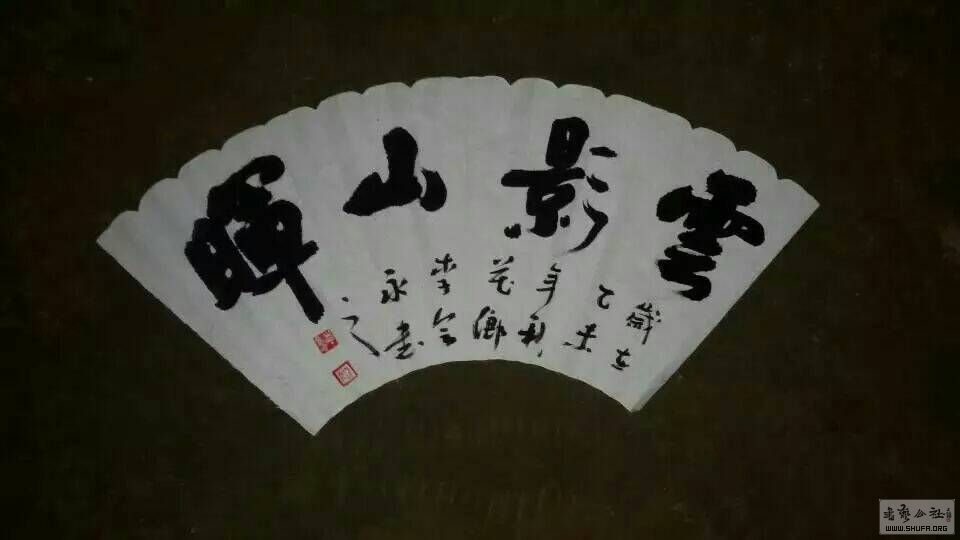 雲影山暉
歲在
乙未
年秋
花鄉
李全
永書
之
書藝公社
WWW.SHUFA.ORG